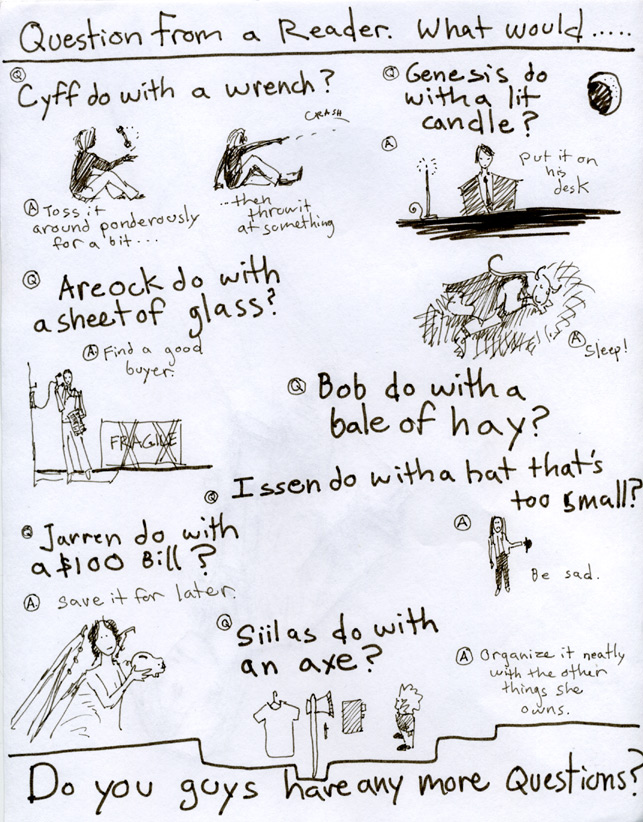 Question from a Reader. What would.....
Q Cyff do with a wrench?
A Toss it
around ponderously
for a bit...
...then
throw it
at something
CRASH
Q Genesis do
with a lit
candle?
A Put it on
his
desk
Q Areock do with
a sheet of glass?
A Find a good
buyer.
FRAGILE
Q Bob do with a
bale of hay?
A Sleep!
Q Issen do with a hat that's
too small?
A Be sad.
Q Jarren do with
a $100 Bill?
A. Save it for later.
Q Siilas do with
an axe?
A Organize it neatly
with the other
things she
owns.
Do you guys have any more Questions?